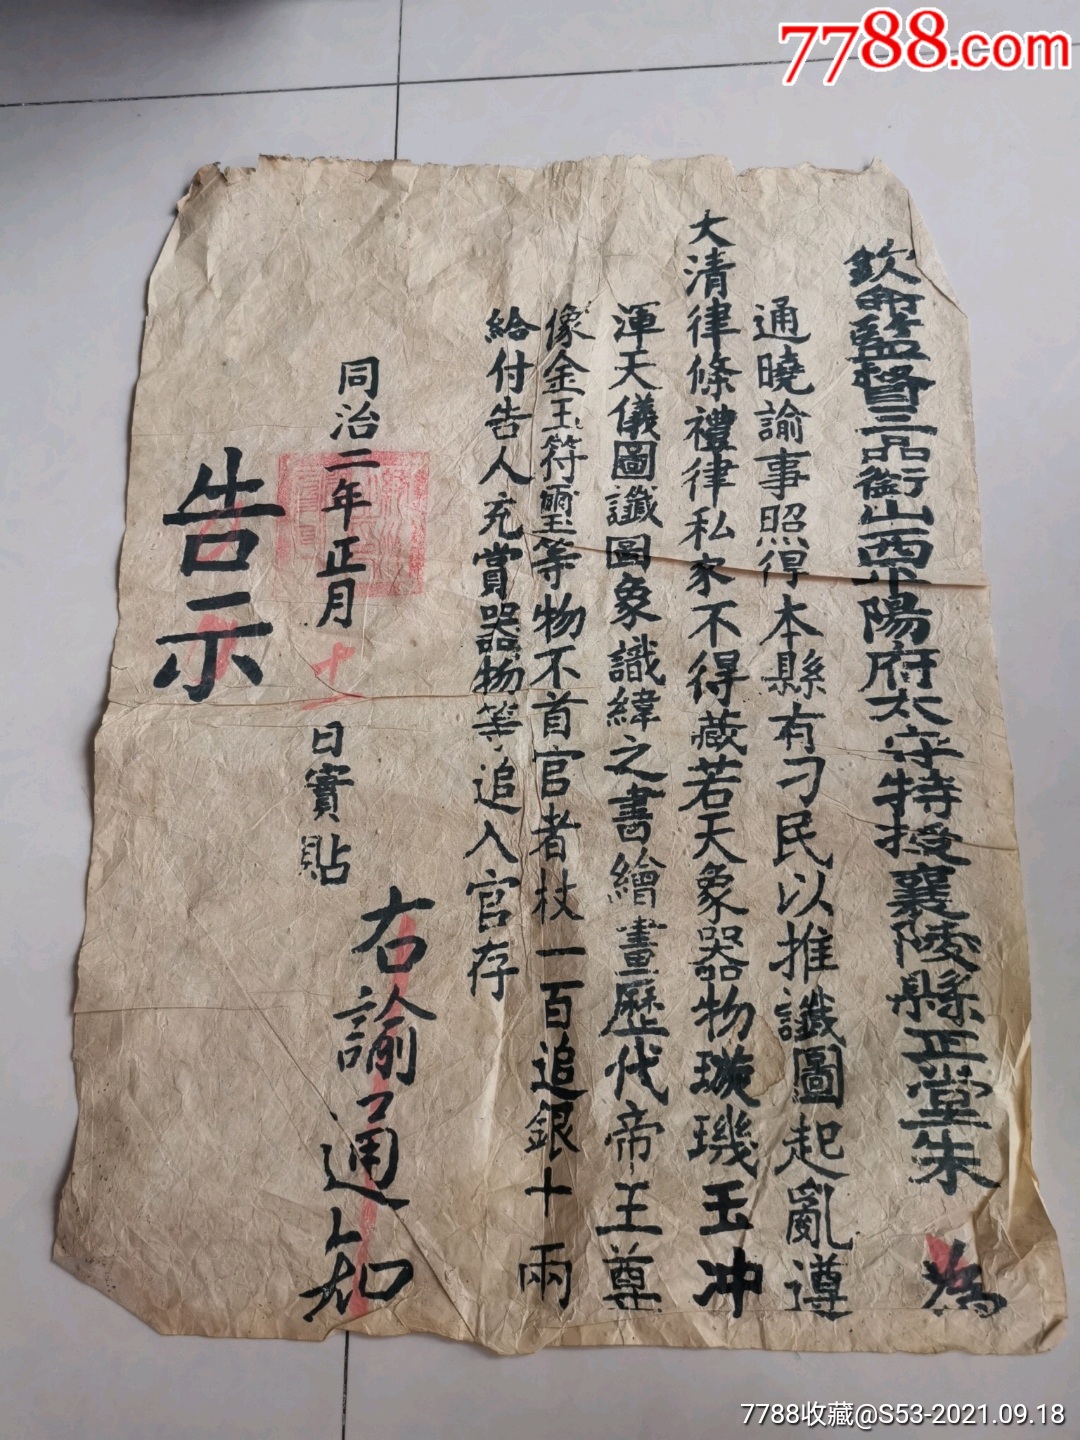 7788.com
欽命監督三品銜山西平陽府太守特授襄陵縣正堂朱 為
通曉諭事照得本縣有刁民以推讖圖起亂遵
大清律條禮律私家不得藏若天象器物璇璣玉冲
渾天儀圖讖圖象識緯之書繪畫歷代帝王尊
像金玉符璽等物不首官者杖一百追銀十兩
給付告人充賞器物等追入官存
右諭通知
同治二年正月十一日實貼
告示
7788收藏@S53-2021.09.18